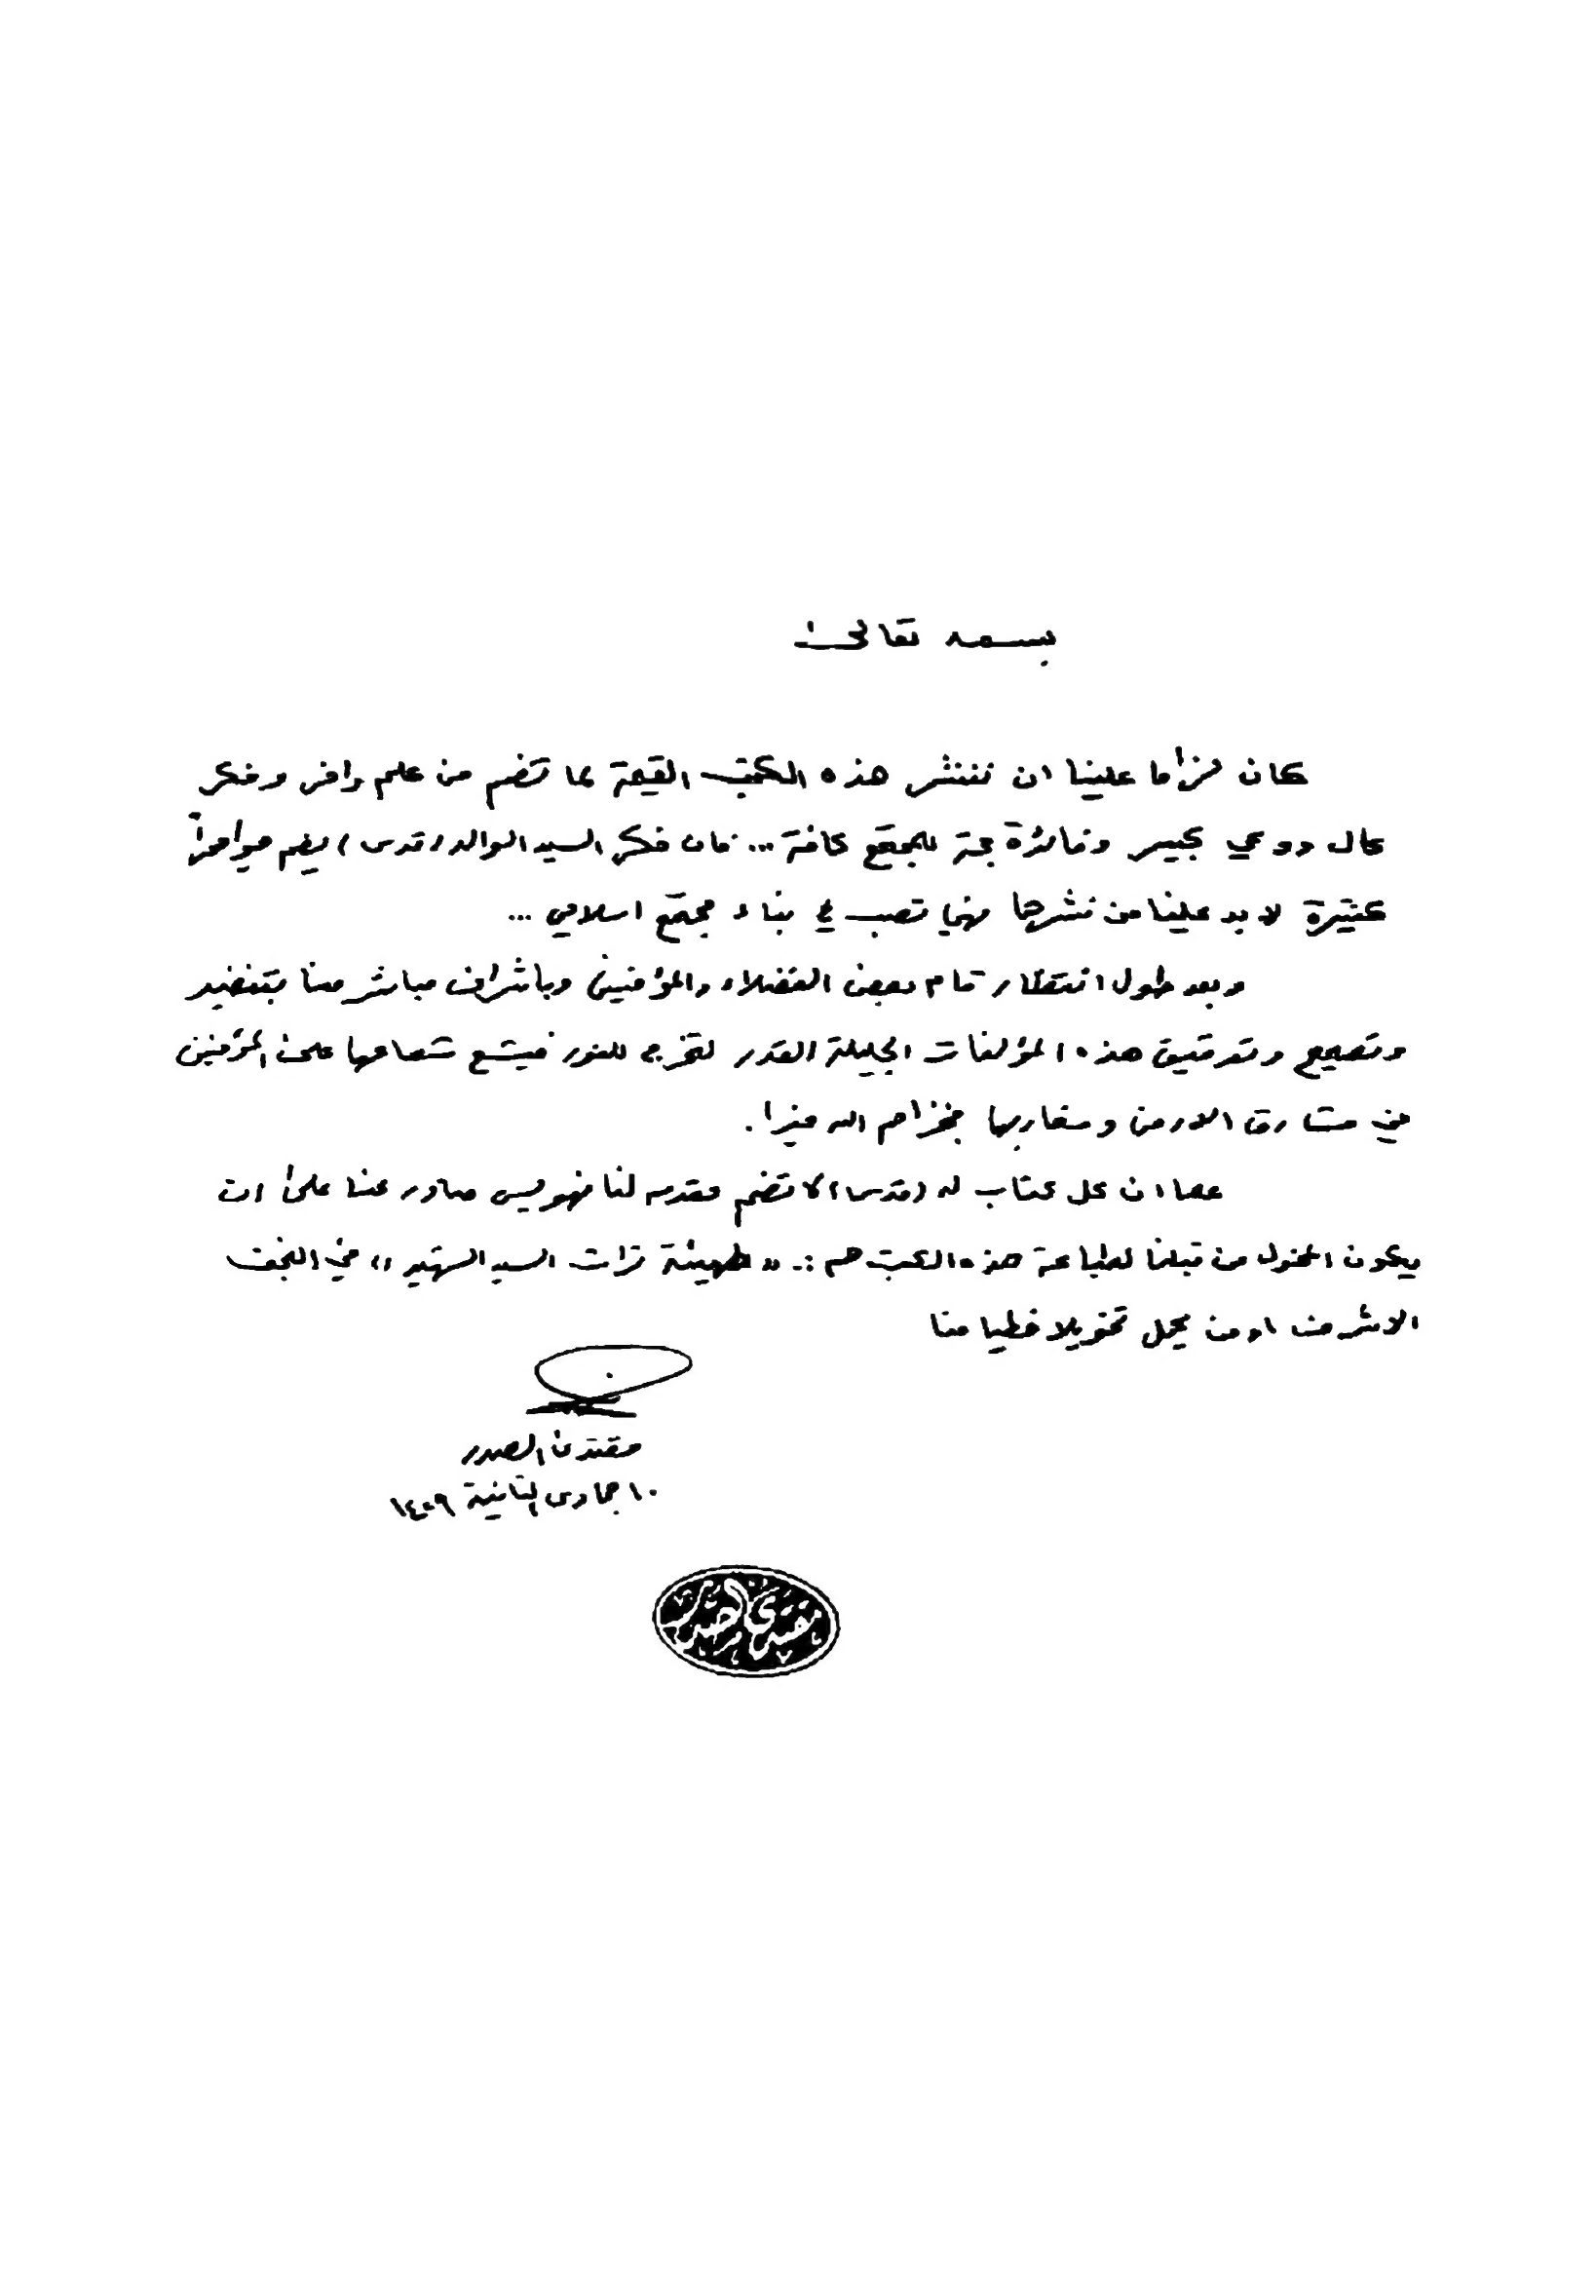 بسمه تعالى
كان لزاما علينا ان ننشر هذه الكتب القيمة لما تضم من علم وافر وفكر
عال ووعي كبير وفائدة جمة للمجتمع كافة ... فان فكر السيد الوالد (قدس) ليضم مواهباً
كثيرة لا بد علينا من نشرها فهي تصب في بناء مجتمع اسلامي ...
وبعد طول انتظار قام بعض الفضلاء والمؤمنين وباشراف مباشر منا بتنضيد
وتصحيح وتدقيق هذه المؤلفات الجليلة القدر لتخرج للنور فيشع شعاعها على المؤمنين
في مشارق الارض ومغاربها فجزاهم الله خيرا .
علما ان كل كتاب له (قدس) لا تضم مقدمه لنا فهو ليس صادر عنا على ان
يكون المخول من قبلنا لطباعة هذه الكتب هم :- «هيئة تراث السيد الشهيد» في النجف
الاشرف او من يحمل تخويلا خطيا منا
مقتدى الصدر
١٠ جمادى الثانية ١٤٠٩